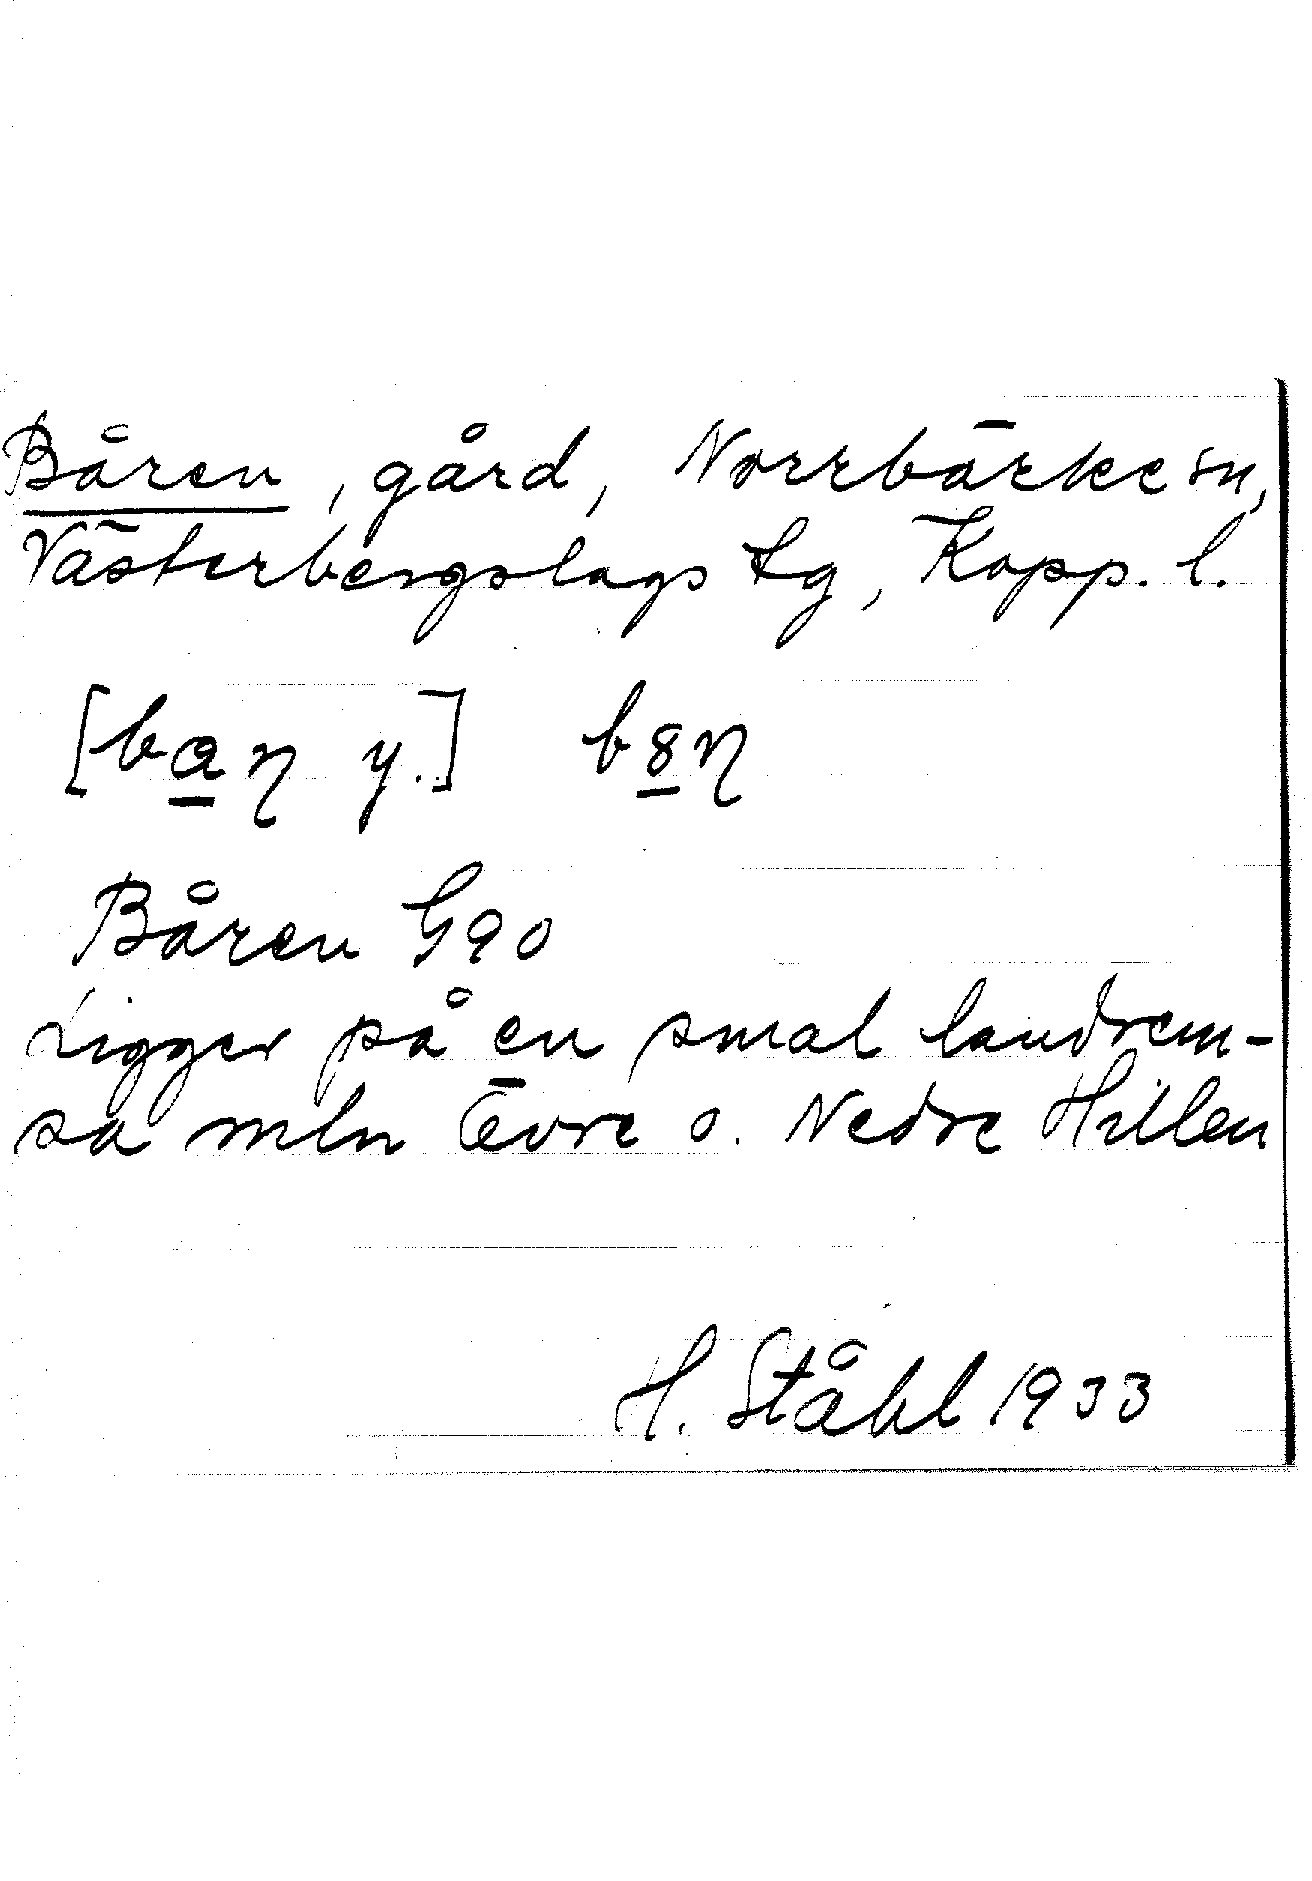 Båren, gård, Norrbärke sn,
Västerbergslags tg, Kopp. l.
[ba̲ŋ y.] b8̲ŋ
Båren G90
Ligger på en smal landrem-
sa mln Övre o. Nedre Hillen
H. Ståhl 1933